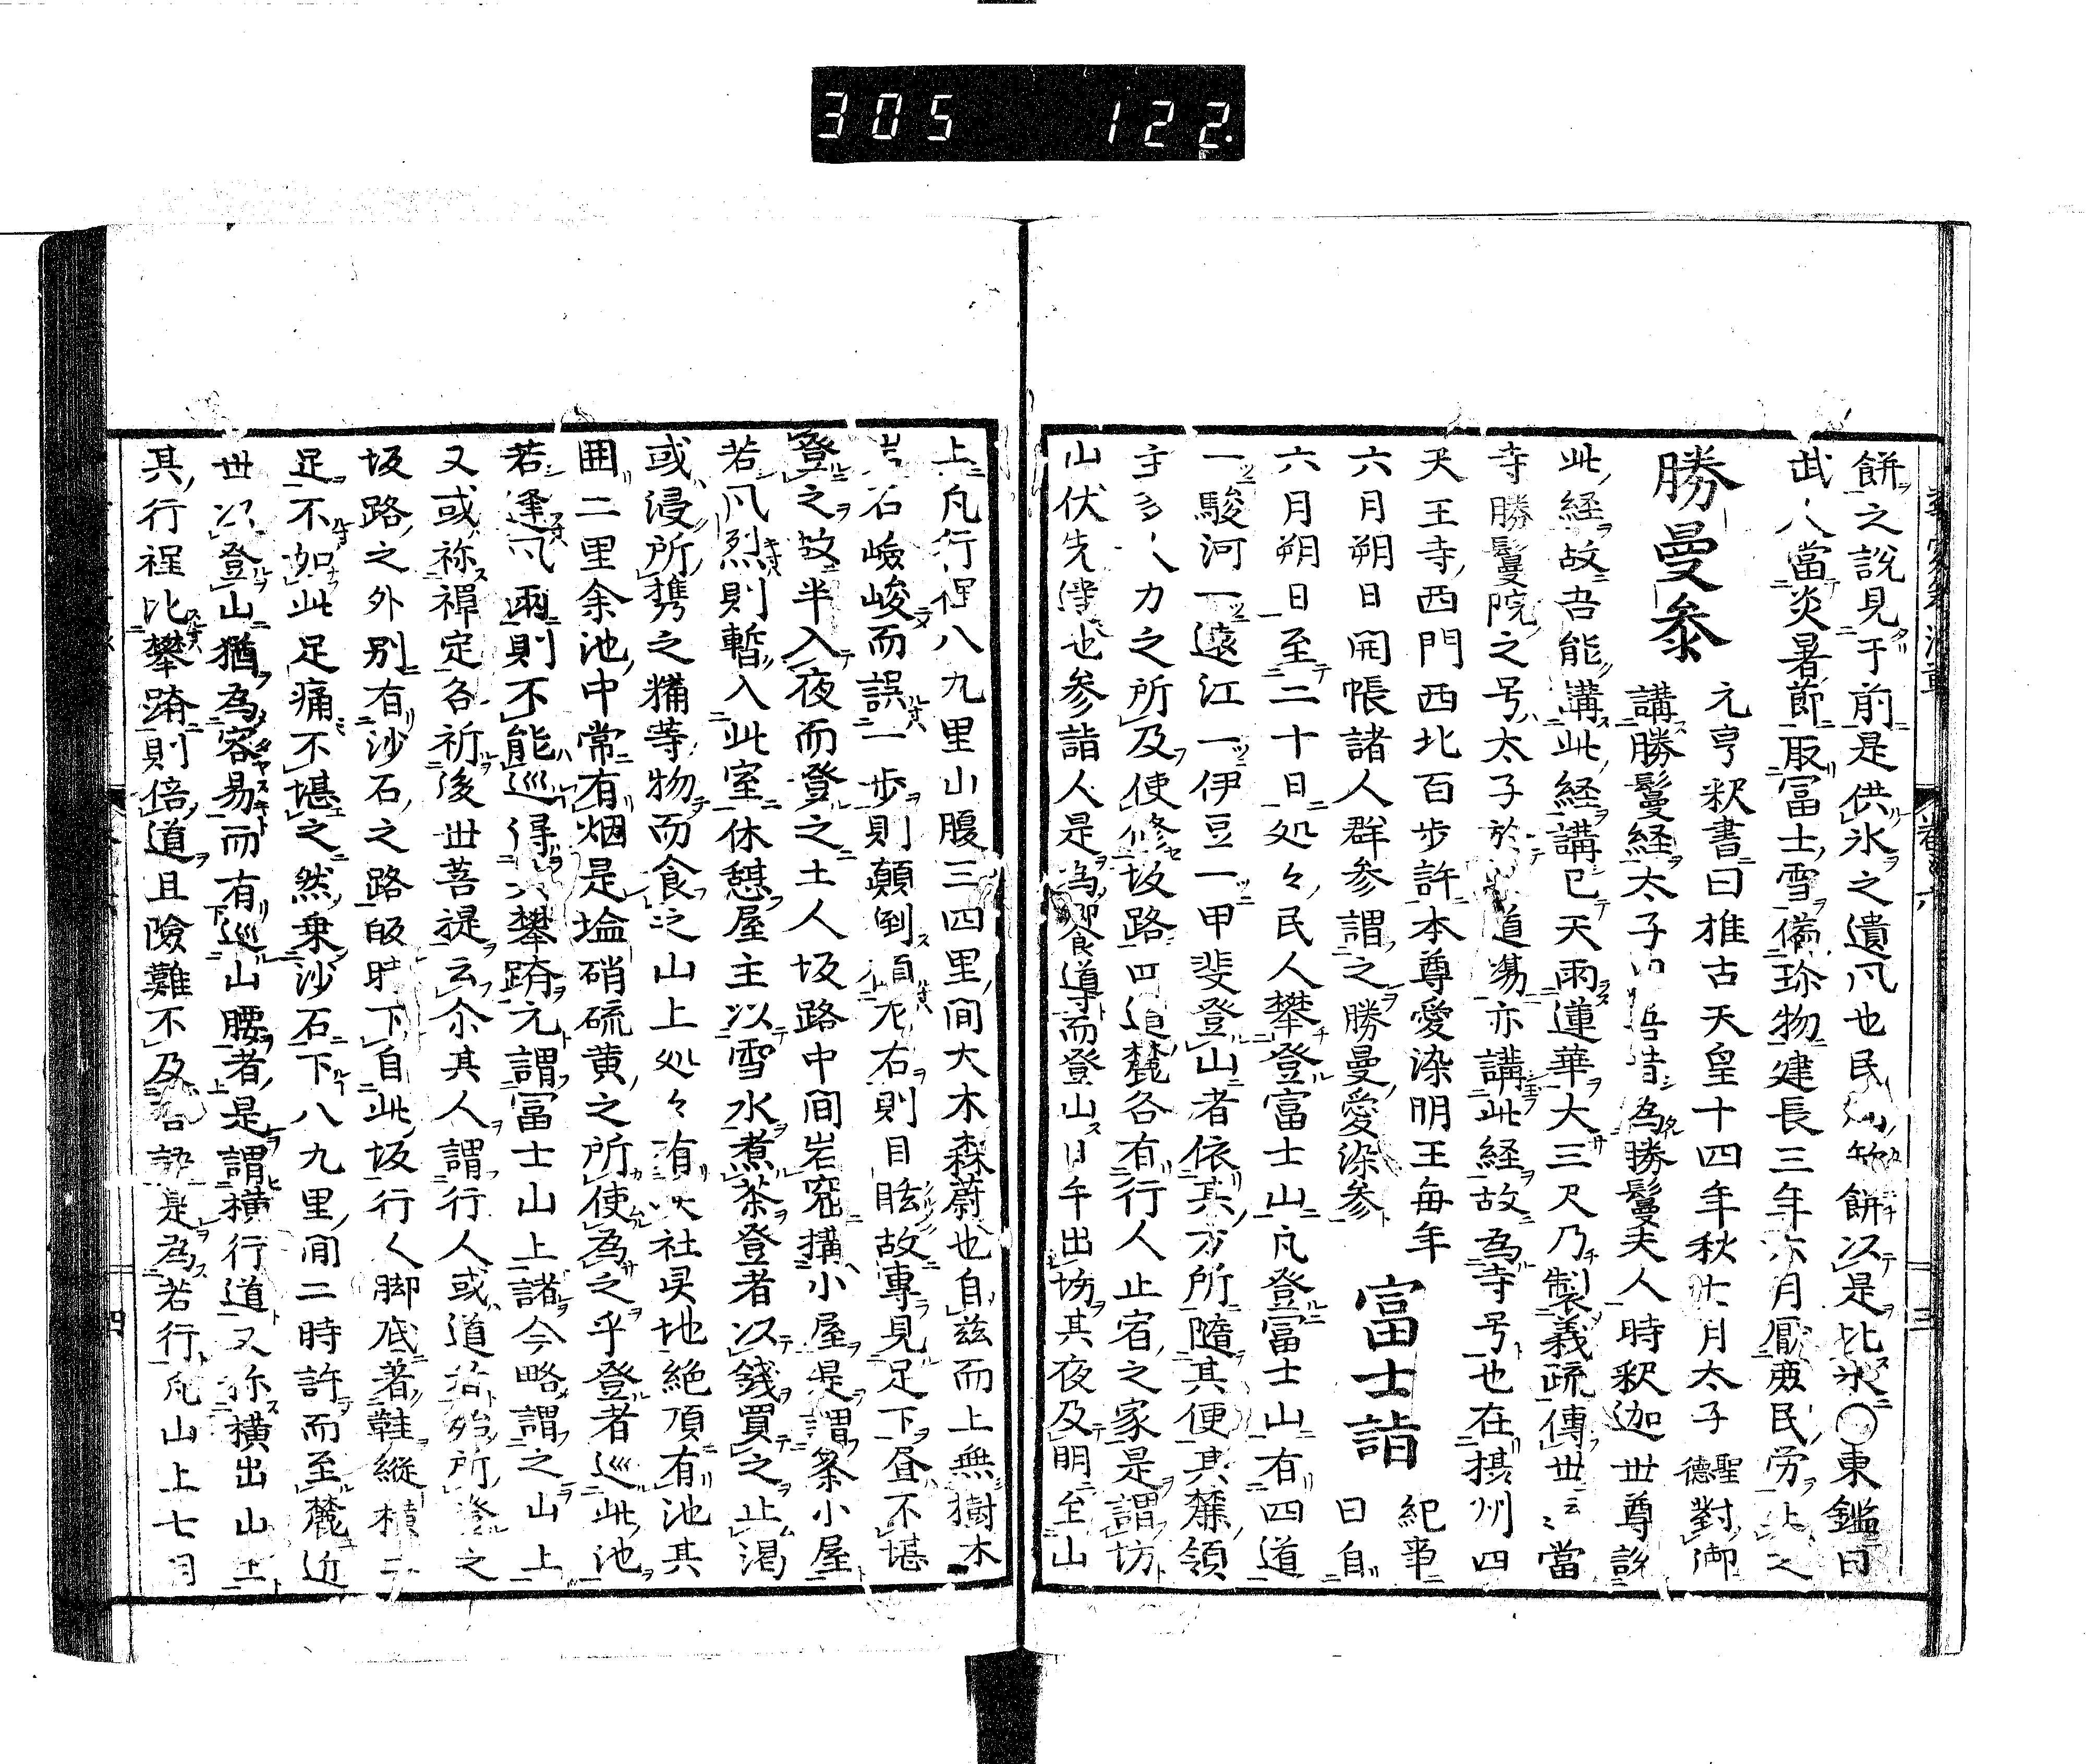 305 122
餅之説見于前是供氷之遺凡也民餅以是比氷〇東鑑曰
當炎暑節取富士雪備珍物建長三年六月民旁之
勝曼參
元亨釈書曰推古天皇十四年秋七月太子聖德對御
講勝鬘経太子曰吾昔為勝鬘夫人時釈迦世尊説
此経故吾能講此経講已天雨蓮華大三尺乃製義疏傳世云云當
寺勝鬘院之号太子於道場亦講此経故為寺号也在摂州四
天王寺西門西北百步許本尊愛染明王每年
六月朔日開帳諸人群參謂之勝曼愛染參
富士詣
紀事
曰自
六月朔日至二十日処々民人攀登富士山凡登富士山有四道
一駿河一遠江一伊豆一甲斐登山者依其方所隨其便其麓領
主多人力之所及使修坂路四道麓各有行人止宿之家是謂坊
山伏先達也參詣人是為導而登山日午出坊其夜及明至山
上凡行程八九里山腹三四里間大木森蔚也自茲而上無樹木
岩石嶮峻而誤一步則顛倒顧左右則目眩故專見足下昼不堪
登之故半入夜而登之土人坂路中間岩窟搆小屋是謂祭小屋
若凡烈則暫入此室休憩屋主以雪水煮茶登者以錢買之止渇
或浸所携之糒等物而食之山上処々有大社奥地絶頂有池其
囲二里余池中常有烟是塩硝硫黄之所使為之乎登者巡此池
若逢凡雨則不能巡得其攀躋元謂富士山上諸今略謂之山上
又或祢禪定各祈後世菩提云尓其人謂行人或道者始所登之
坂路之外別有沙石之路時下自此坂行人脚底著鞋縱橫二
足不如此足痛不堪之然乗沙石下八九里間二時許而至麓近
世以登山猶為容易而有巡山腰者是謂橫行道又祢橫出山上
其行程比攀躋則倍道且險難不及是為若行凡山上七月